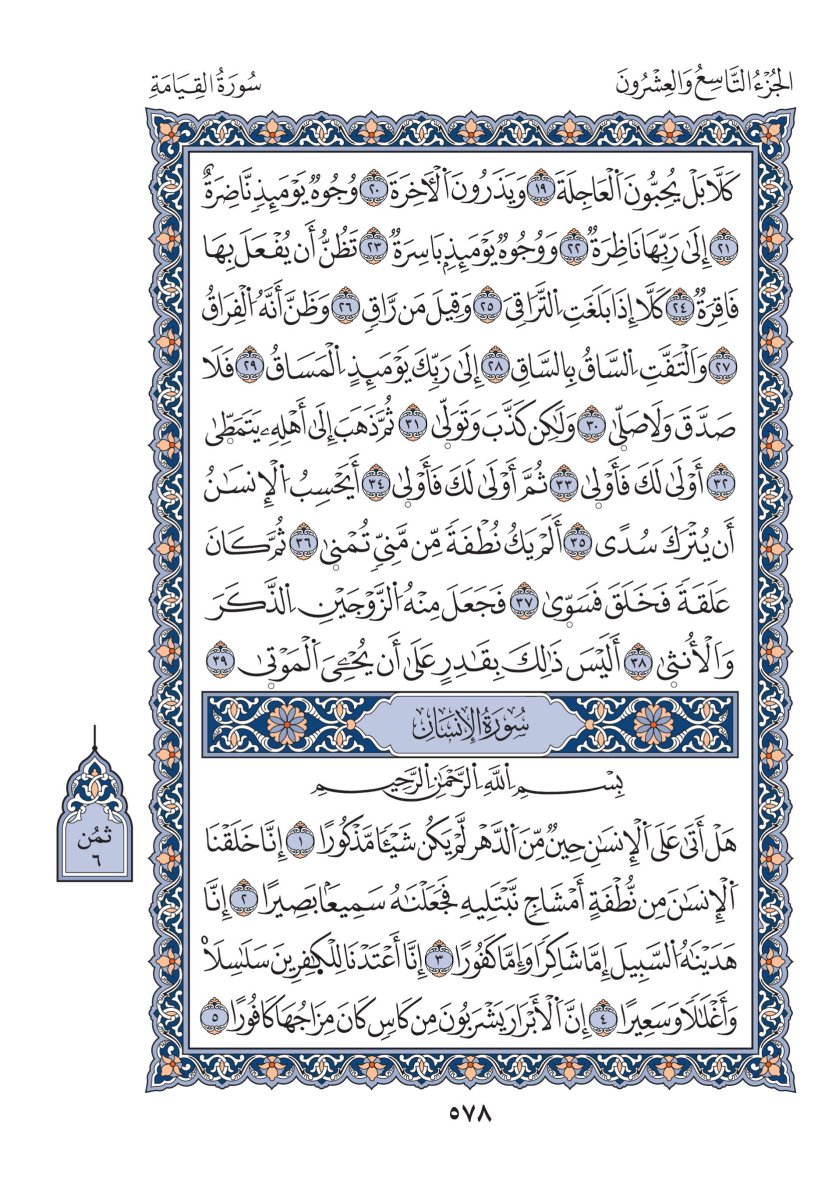 الجُزْءُ التَّاسِعُ وَالعِشْرُونَ
سُورَةُ القِيَامَةِ
كَلَّا بَلْ يُحِبُّونَ اَ۬لْعَاجِلَةَ ١٩ وَيَذَرُونَ اَ۬لْأَخِرَةَ ٢٠ وُجُوهٌ يَوْمَئِذٍ نَّاضِرَةٌ
٢١ إِلَىٰ رَبِّهَا نَاظِرَةٌ ٢٢ وَوُجُوهٌ يَوْمَئِذٍ بَاسِرَةٌ ٢٣ تَظُنُّ أَن يُفْعَلَ بِهَا
فَاقِرَةٌ ٢٤ كَلَّا إِذَا بَلَغَتِ اِ۬لتَّرَاقِيَ ٢٥ وَقِيلَ مَن رَّاقٍ ٢٦ وَظَنَّ أَنَّهُ اُ۬لْفِرَاقُ
٢٧ وَالْتَفَّتِ اِ۬لسَّاقُ بِالسَّاقِ ٢٨ إِلَىٰ رَبِّكَ يَوْمَئِذٍ اِ۬لْمَسَاقُ ٢٩ فَلَا
صَدَّقَ وَلَا صَلّٜىٰ ٣٠ وَلَٰكِن كَذَّبَ وَتَوَلّٜىٰ ٣١ ثُمَّ ذَهَبَ إِلَىٰ أَهْلِهِۦ يَتَمَطّٜىٰ
٣٢ أَوْلَىٰ لَكَ فَأَوْلٜىٰ ٣٣ ثُمَّ أَوْلَىٰ لَكَ فَأَوْلٜىٰ ٣٤ أَيَحْسِبُ اُ۬لْإِنسَٰنُ
أَن يُتْرَكَ سُدًى ٣٥ أَلَمْ يَكُ نُطْفَةً مِّن مَّنِيٍّ تُمْنٜىٰ ٣٦ ثُمَّ كَانَ
عَلَقَةً فَخَلَقَ فَسَوّٜىٰ ٣٧ فَجَعَلَ مِنْهُ اُ۬لزَّوْجَيْنِ اِ۬لذَّكَرَ
وَالْأُنثٜىٰ ٣٨ أَلَيْسَ ذَٰلِكَ بِقَٰدِرٍ عَلَىٰ أَن يُحْـِۧيَ اَ۬لْمَوْتٜىٰ ٣٩
سُورَةُ الإِنسَانِ
بِسْمِ اِ۬للَّهِ اِ۬لرَّحْمَٰنِ اِ۬لرَّحِيمِ
هَلْ أَتَىٰ عَلَى اَ۬لْإِنسَٰنِ حِينٌ مِّنَ اَ۬لدَّهْرِ لَمْ يَكُن شَيْـًٔا مَّذْكُورًا ١ إِنَّا خَلَقْنَا
اَ۬لْإِنسَٰنَ مِن نُّطْفَةٍ أَمْشَاجٍ نَّبْتَلِيهِ فَجَعَلْنَٰهُ سَمِيعًا بَصِيرًا ٢ إِنَّا
هَدَيْنَٰهُ اُ۬لسَّبِيلَ إِمَّا شَاكِرًا وَإِمَّا كَفُورًا ٣ إِنَّا أَعْتَدْنَا لِلْكٰٜفِرِينَ سَلَٰسِلَاْ
وَأَغْلَٰلًا وَسَعِيرًا ٤ إِنَّ اَ۬لْأَبْرَارَ يَشْرَبُونَ مِن كَاسٍ كَانَ مِزَاجُهَا كَافُورًا ٥
ثُمُن
٦
٥٧٨